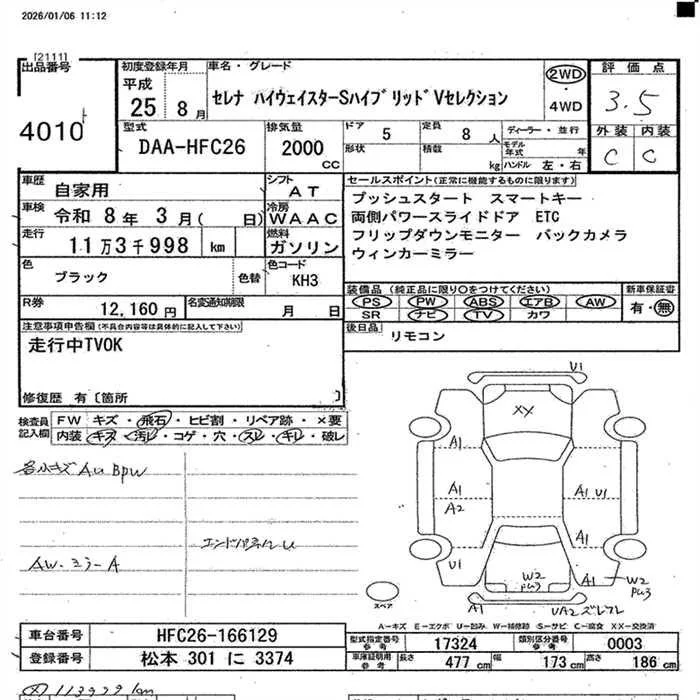 2026/01/06 11:12
[2111]
出品番号
4010
初度登録年月
平成
25 8月
車名・グレード
セレナ ハイウェイスターSハイブリッドVセレクション
2WD
・
4WD
評価点
3.5
外装 内装
C C
型式
DAA-HFC26
排気量
2000
CC
ドア
5
定員
8人
形状
積載
kg
ディーラー・並行
モデル年式 年
ハンドル 左・右
車歴
自家用
シフト
AT
車検
令和 8年 3月( 日)
冷房
WAAC
走行
11万3千998 km
燃料
ガソリン
色
ブラック
色替
色コード
KH3
R券
12,160円
名変通知期限
月 日
セールスポイント(正常に機能するものに限ります)
プッシュスタート スマートキー
両側パワースライドドア ETC
フリップダウンモニター バックカメラ
ウィンカーミラー
装備品 (純正品に限り○をつけてください)
PS PW ABS エアB AW
SR ナビ TV カワ
新車保証書
有・無
後日品
リモコン
注意事項申告欄(不具合内容等は具体的に記入して下さい)
走行中TVOK
修復歴 有〔箇所 〕
検査員
記入欄
FW キズ・飛石・ヒビ割・リペア跡・×要
内装 キズ・汚レ・コゲ・穴・スレ・キレ・破レ
各小キズ AU BPW
エンドパネルU
AW・ミラーA
U1
XY
A1
A1
A2
A1 U1
A1
U1
W2
PU3
A1
W2
PU3
A1
UA2 ズレワレ
スペア
A−キズ E−エクボ U−凹み W−補修跡 S−サビ C−腐食 XX−交換済
車台番号
HFC26-166129
登録番号
松本 301 に 3374
型式指定番号
参考
17324
類別区分番号
参考
0003
車庫証明用
参考
長さ
477cm
幅
173cm
高さ
186cm